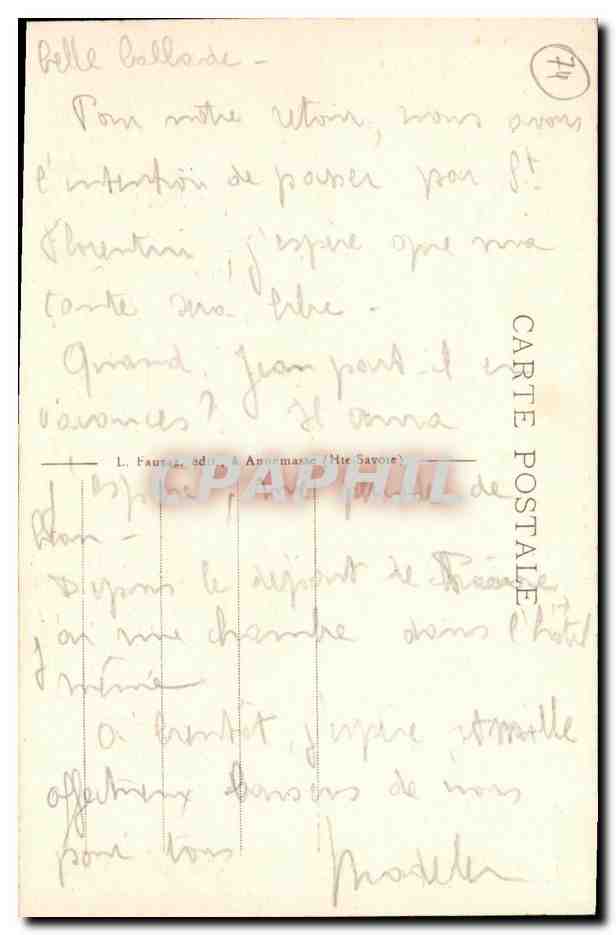 belle ballade -
74
Pour notre retour, nous avons
l'intention de passer par St
Florentin, j'espère que ma
tante sera libre.
Quand Jean part-il en
vacances? Il aura
CARTE POSTALE
L. Fauraz, édit., à Annemasse (Hte-Savoie)
CPAPHIL
j'espère, de
Depuis le départ de
j'ai une chambre dans l'hôtel
même
A bientôt, j'espère, et mille
affectueux baisers de nous
pour tous